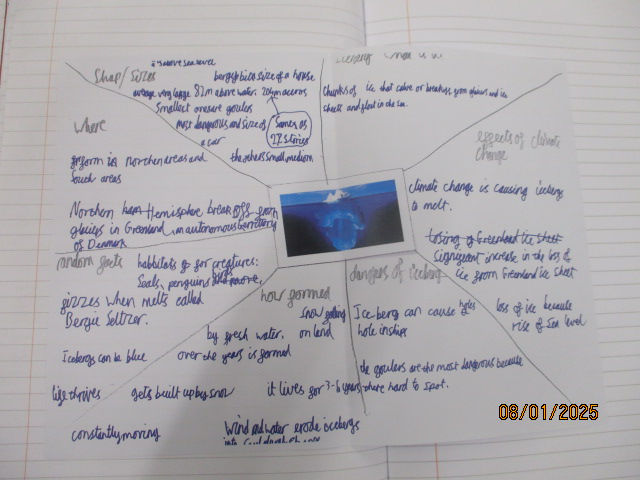 it's above sea level
Shap/sizes
bergy bits size of a house
average very large 82m above water 20
Smallest ones are goulers
most dangerous and size of
a car
Same as
27 stories
the others small medium
where
form in northen areas and
south areas
Northen Hemisphere break off from
glaciers in Greenland, an autonomous territory
of Denmark
Iceberg what is it
chunks of ice that calve or breakes from glaciers and ice
sheets and float in the sea.
effects of climate
change
climate change is causing icebergs
to melt.
losing of Greenland ice sheet
significant increase in the loss of
ice from Greenland ice sheet
loss of ice because
rise of sea level
random facts
habbitats for creatures:
Seals, penguins birds
gizzes when melts called
Bergie Seltzer.
Icebergs can be blue
life thrives
constantly moving
how formed
Snow falling
on land
by fresh water.
over the years is formed
gets built up by snow
it lives for 3-6 years
Wind and water erode icebergs
into
dangers of iceberg
Ice berg can cause holes
hole in ships
the goulers are the most dangerous because
there hard to spot.
08/01/2025